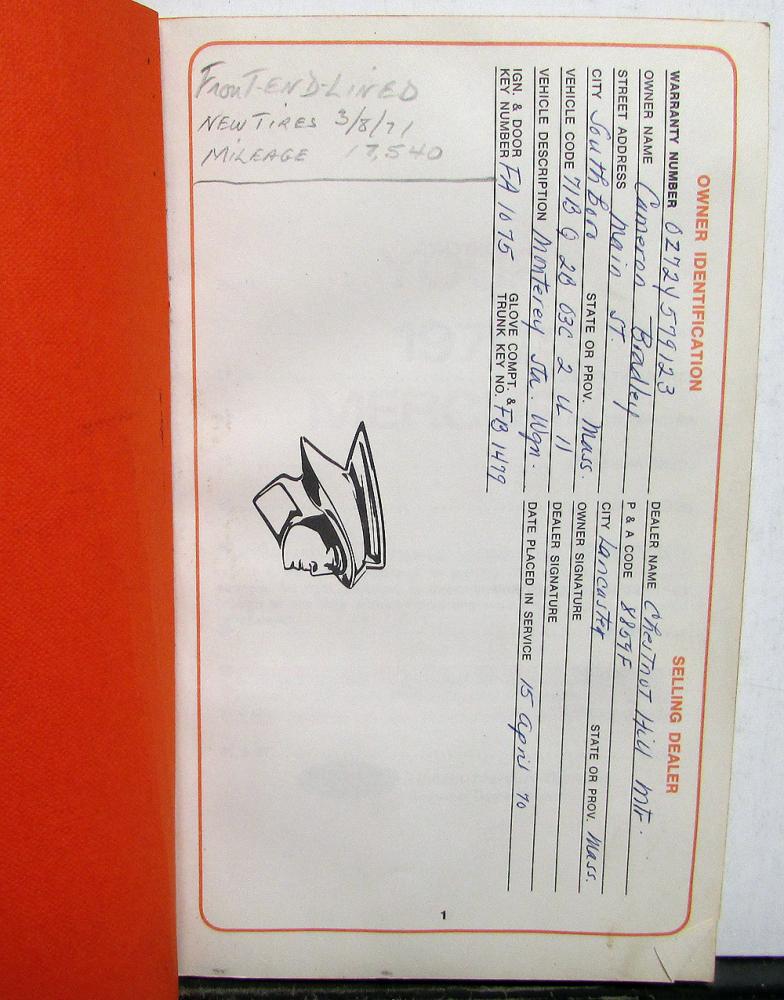 OWNER IDENTIFICATION
WARRANTY NUMBER 0Z72Y579123
OWNER NAME Cameron Bradley
STREET ADDRESS Main ST.
CITY SouthBoro STATE OR PROV. Mass.
VEHICLE CODE 71B Q 2B 03C 2 4 11
VEHICLE DESCRIPTION Monterey Sta. Wgn.
IGN. & DOOR GLOVE COMPT. &
KEY NUMBER FA 1075 TRUNK KEY NO. FB 1479
SELLING DEALER
DEALER NAME Chestnut Hill Mtr.
P & A CODE 8859F
CITY Lancaster STATE OR PROV. Mass.
OWNER SIGNATURE
DEALER SIGNATURE
DATE PLACED IN SERVICE 15 April 70
FronT-END-LINED
NEW TIRES 3/8/71
MILEAGE 17,540
1